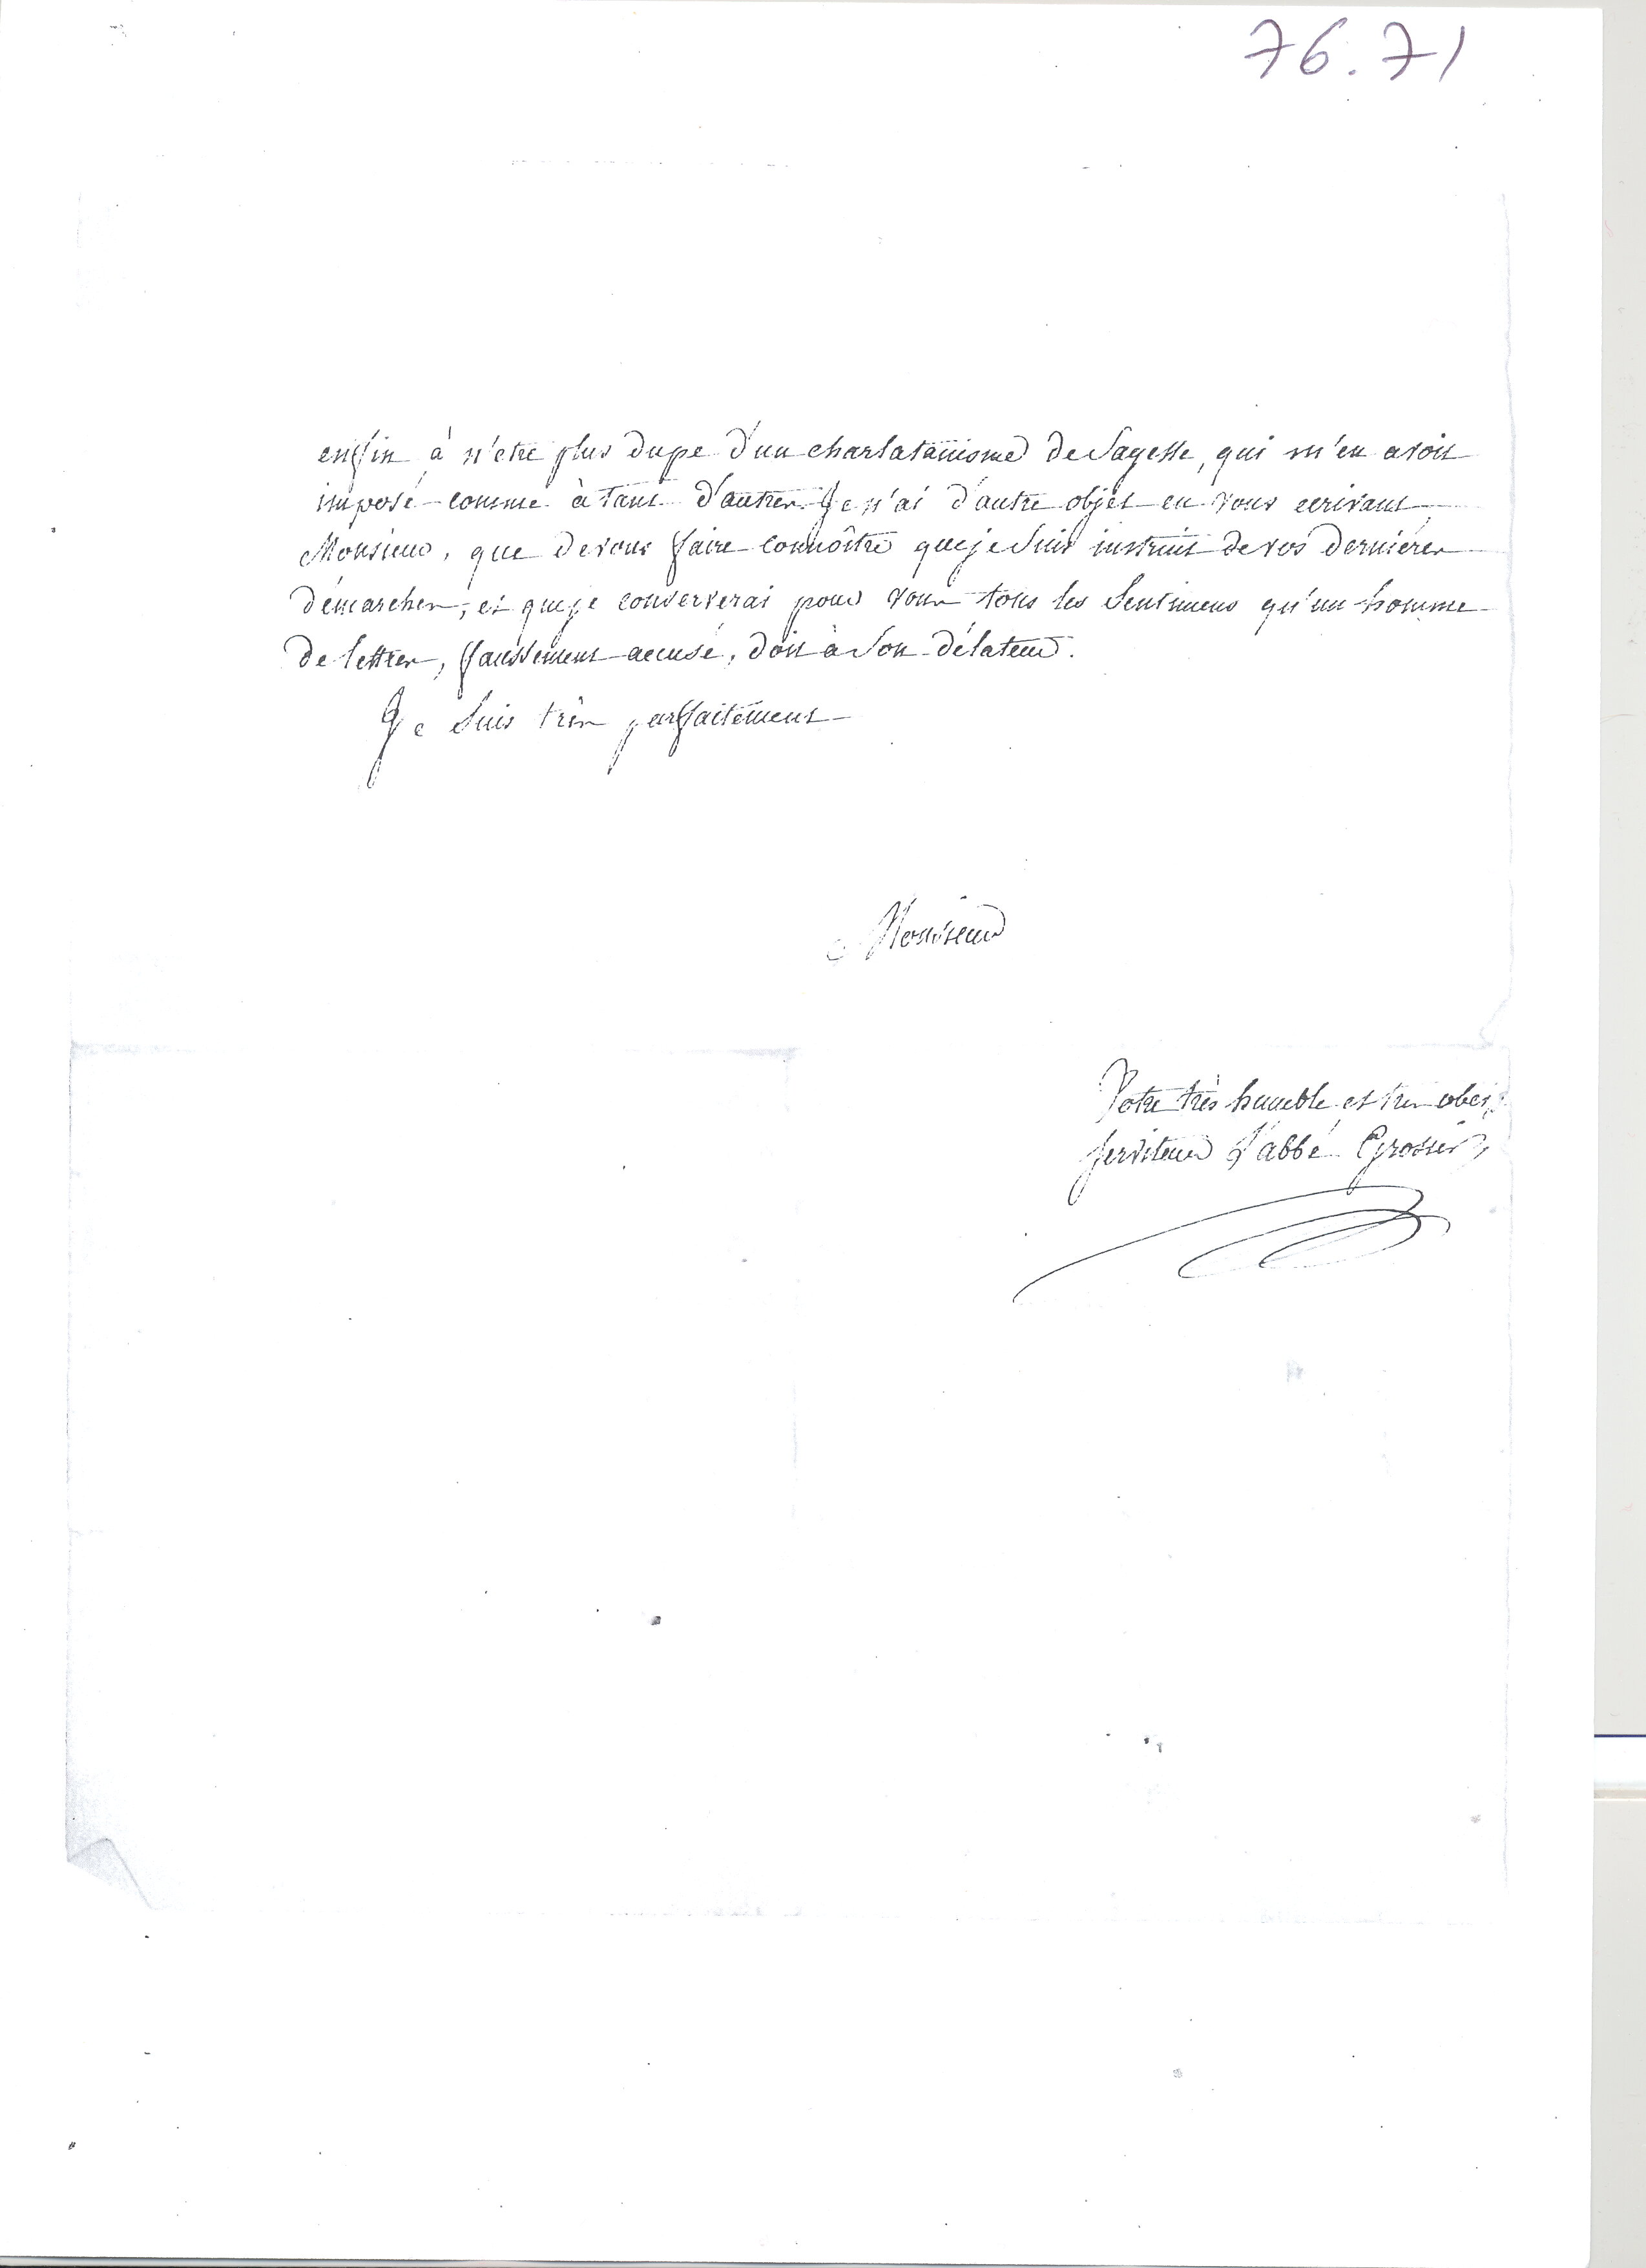 76.71
enfin à n'etre plus dupe d'un charlatanisme de Sagesse, qui m'en avoit
imposé comme à tant d'autres. Je n'ai d'autre objet en vous ecrivant,
Monsieur, que de vous faire connoître que je suis instruit de vos dernières
démarches, et que je conserverai pour vous tous les Sentimens qu'un homme
de lettres, faussement accusé, doit à Son délateur.
Je Suis très parfaitement
Monsieur
Votre très humble et très obeis.
serviteur L'abbé Grosier